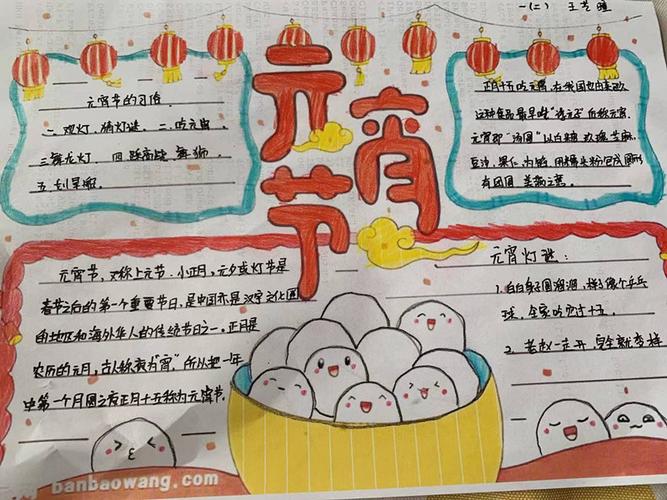 一(二) 王艺瞳
元宵节
元宵节的习俗
一.观灯、猜灯谜、二.吃元宵、
三舞龙灯、四.踩高跷 舞狮、
五.划旱船、
正月十五吃元宵,在我国也由来已
元宵即"汤圆"以白糖、玫瑰芝麻、
豆沙、果仁、为馅,用糯米粉包成圆形
有团圆 美满之意.
元宵节,又称上元节.小正月,元夕或灯节是
春节之后的第一个重要节日,是中国亦是汉字文化圈
的地区和海外华人的传统节日之一.正月是
农历的元月,古人称夜为"宵"所以把一年
中第一个月圆之夜正月十五称为元宵节.
元宵灯谜:
1.白白身子圆溜溜,
球,全家吃完过十五.
banbaowang.com